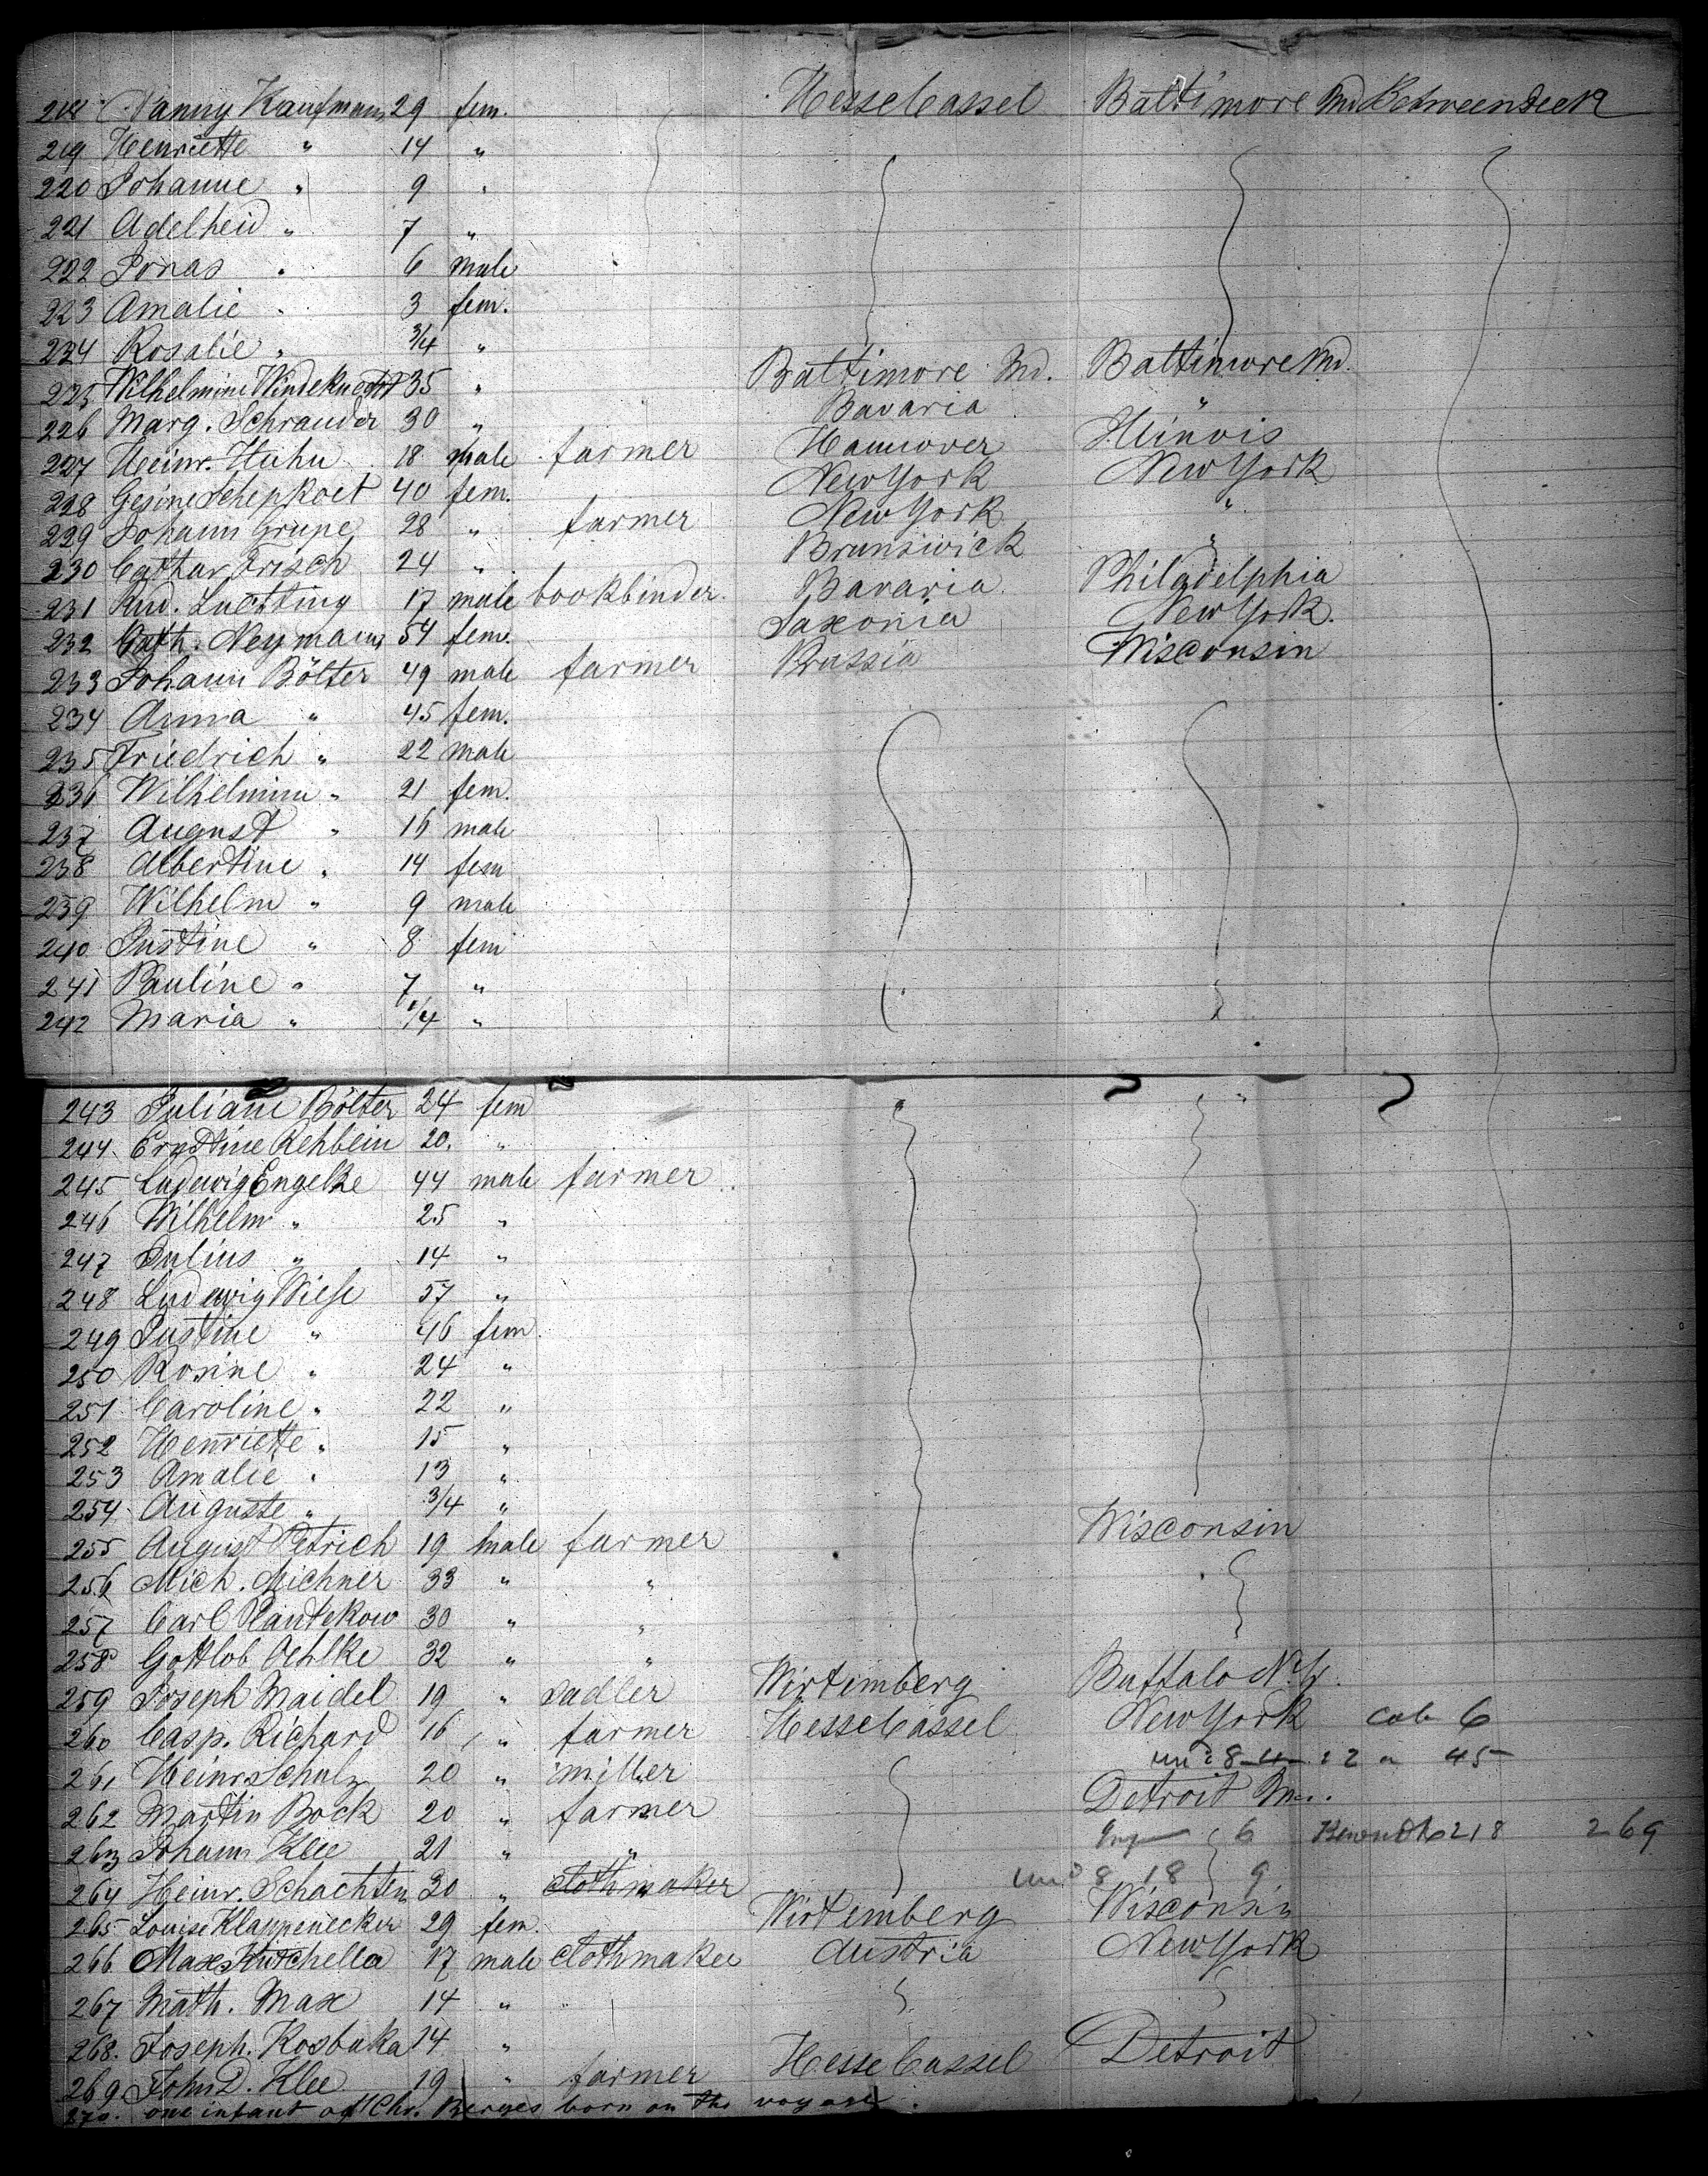 218 Nanny Kaufmann 29 fem. Hesse Cassel Baltimore Md Betweendeck
219 Henriette " 14 "
220 Johanne " 9 "
221 Adelheid " 7 "
222 Jonas " 6 male
223 Amalie " 3 fem.
224 Rosalie " 3/4 "
225 Wilhelmine Windeknecht 35 " Baltimore Md. Baltimore Md.
226 Marg. Schrauder 30 " Bavaria "
227 Heinr. Hahn 18 male farmer Hannover Illinois
228 Gesine Schepkoet 40 fem. New York New York
229 Johann Grupe 28 " farmer New York "
230 Cathar Frisch 24 " Brunswick "
231 Rud. Luchting 17 male bookbinder. Bavaria Philadelphia
232 Cath. Neymann 54 fem. Saxonia New York.
233 Johann Bölter 49 male farmer Prussia Wisconsin
234 Anna " 45 fem.
235 Friedrich " 22 male
236 Wilhelmine " 21 fem.
237 August " 16 male
238 Albertine " 14 fem
239 Wilhelm " 9 male
240 Justine " 8 fem
241 Pauline " 7 "
242 Maria " 1/4 "
243 Juliane Bölter 24 fem
244 Ernstine Rehbein 20. "
245 Ludewig Engelke 44 male farmer
246 Wilhelm " 25 "
247 Julius " 14 "
248 Ludewig Wiese 57 "
249 Justine " 46 fem.
250 Rosine " 24 "
251 Caroline " 22 "
252 Henriette " 15 "
253 Amalie " 13 "
254 Auguste " 3/4 "
255 August Petrich 19 male farmer Wisconsin
256 Mich. Michner 33 " "
257 Carl Plantekow 30 " "
258 Gottlob Oehlke 32 " "
259 Joseph Maidel 19 " sadler Wirtemberg Buffalo N.Y.
260 Casp. Richard 16 " farmer Hesse Cassel New York cab 6
261 Heinr Schulz 20 " miller 8 4 : 2 45
262 Martin Bock 20 " farmer Detroit
263 Johann Klee 21 " " 6 218 269
264 Heinr. Schachten 30 " clothmaker 8 18 9
265 Louise Klappenecker 29 fem. Wirtemberg Wisconsin
266 Max Kutchella 17 male clothmaker Austria New York
267 Math. Max 14 "
268. Joseph. Kosbuka 14 "
269 John D. Klee 19 " farmer Hesse Cassel Detroit
270. one infant of Chr. Berges born on the voyage.